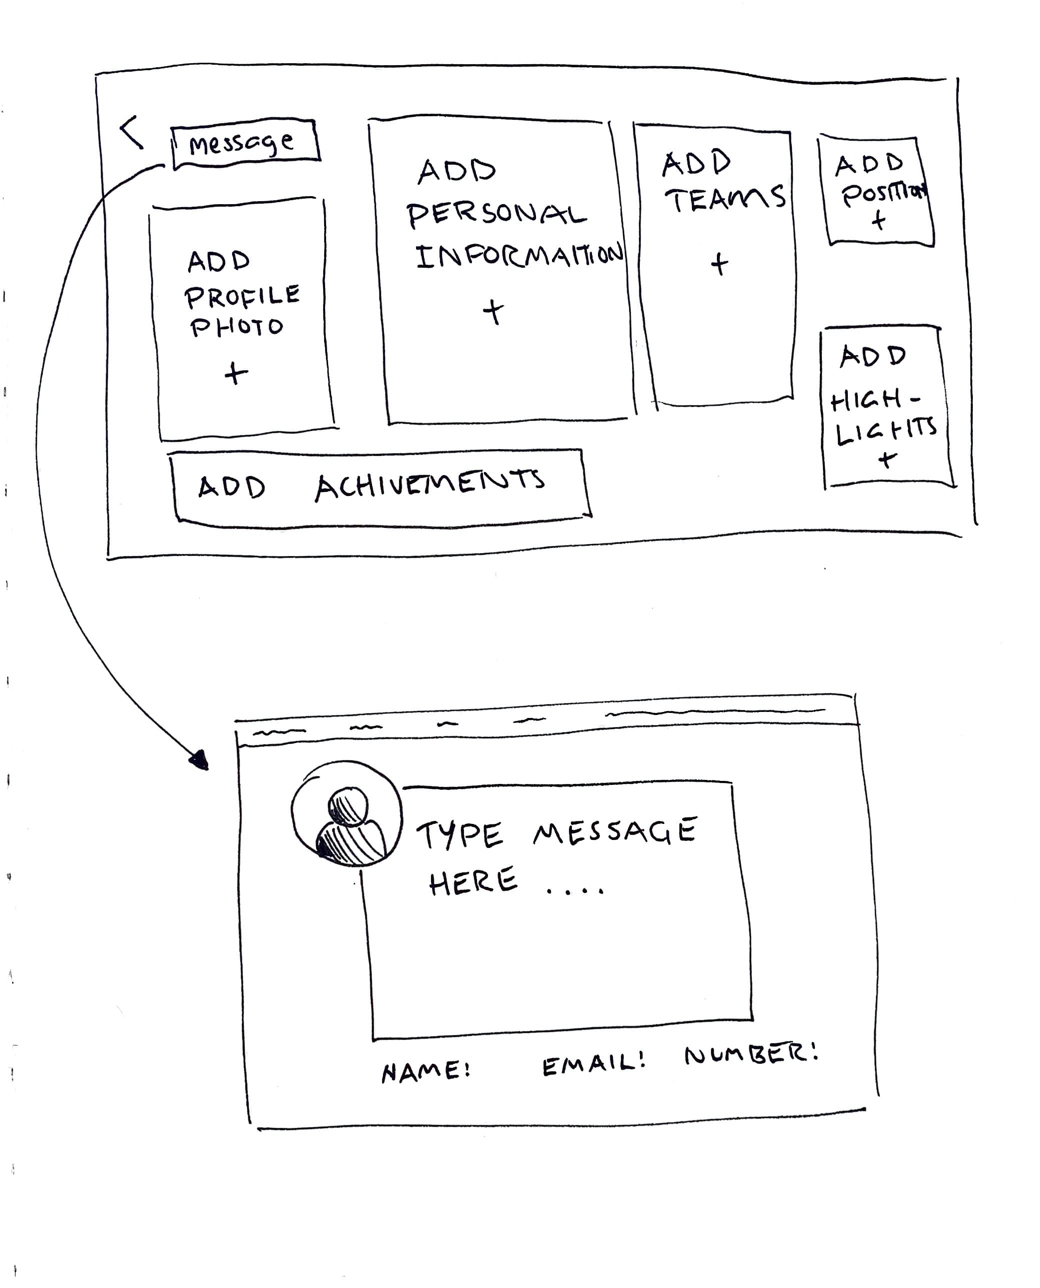 <
message
ADD
PROFILE
PHOTO
+
ADD
PERSONAL
INFORMAITION
+
ADD
TEAMS
+
ADD
POSITION
+
ADD
HIGH-
LIGHTS
+
ADD ACHIVEMENTS
TYPE MESSAGE
HERE ....
NAME! EMAIL! NUMBER!